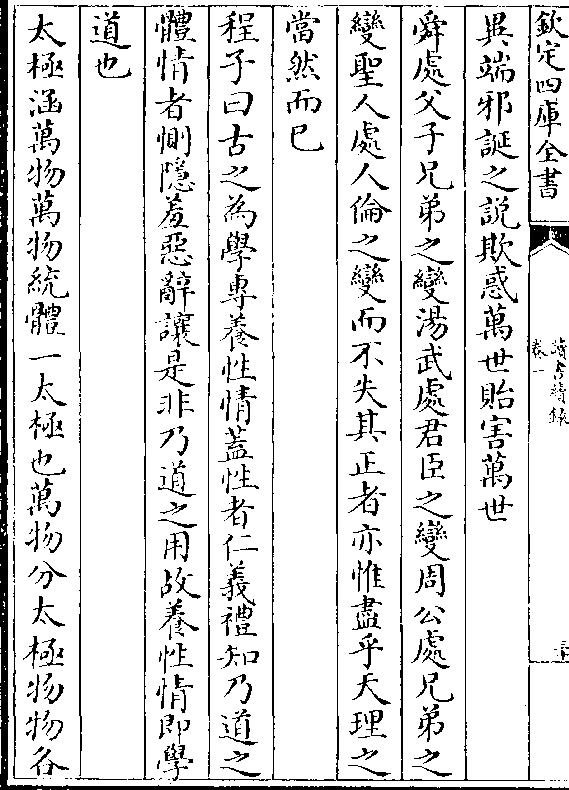 欽定四庫全書
讀書續錄
卷一
異端邪誕之説欺惑萬世貽害萬世
舜處父子兄弟之變湯武處君臣之變周公處兄弟之
變聖人處人倫之變而不失其正者亦惟盡乎天理之
當然而已
程子曰古之為學專養性情蓋性者仁義禮知乃道之
體情者惻隱羞惡辭讓是非乃道之用故養性情即學
道也
太極涵萬物萬物統體一太極也萬物分太極物物各